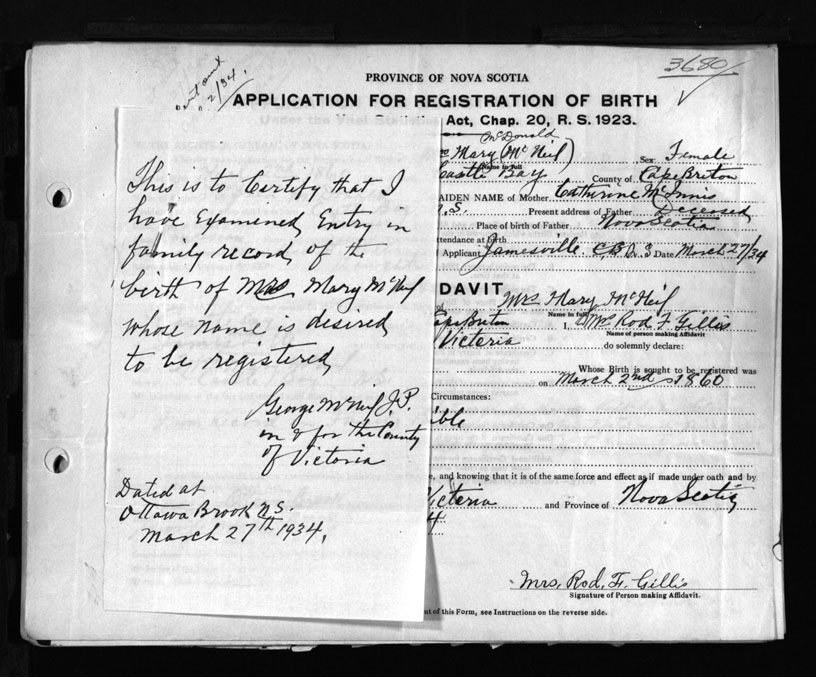 3680
2/34.
PROVINCE OF NOVA SCOTIA
APPLICATION FOR REGISTRATION OF BIRTH
Act, Chap. 20, R. S. 1923.
McDonald
Mary (McNeil) Sex Female
Name in full
Castle Bay County of Cape Briton
AIDEN NAME of Mother Cathrine McInnis
N.S. Present address of Father Deceased
Place of birth of Father Nova Scotia
ttendance at birth
Applicant Jamesville C.B. N.S. Date March 27/34
DAVIT
Mrs Mary McNeil
Name in full
Cape Briton I, Mrs Rod F Gillis
Name of person making Affidavit
Victoria do solemnly declare:
Whose Birth is sought to be registered was
on March 2nd 1860
Circumstances:
ible
e, and knowing that it is of the same force and effect as if made under oath and by
Victoria and Province of Nova Scotia
4
Mrs. Rod. F. Gillis
Signature of Person making Affidavit.
ut of this Form, see Instructions on the reverse side.
This is to Certify that I
have Examined Entry in
family record, of the
birth of Mrs Mary McNeil
whose name is disired
to be registered,
George McNeil J.P.
in & for the County
of Victoria
Dated at
Ottawa Brook N.S.
March 27th 1934.